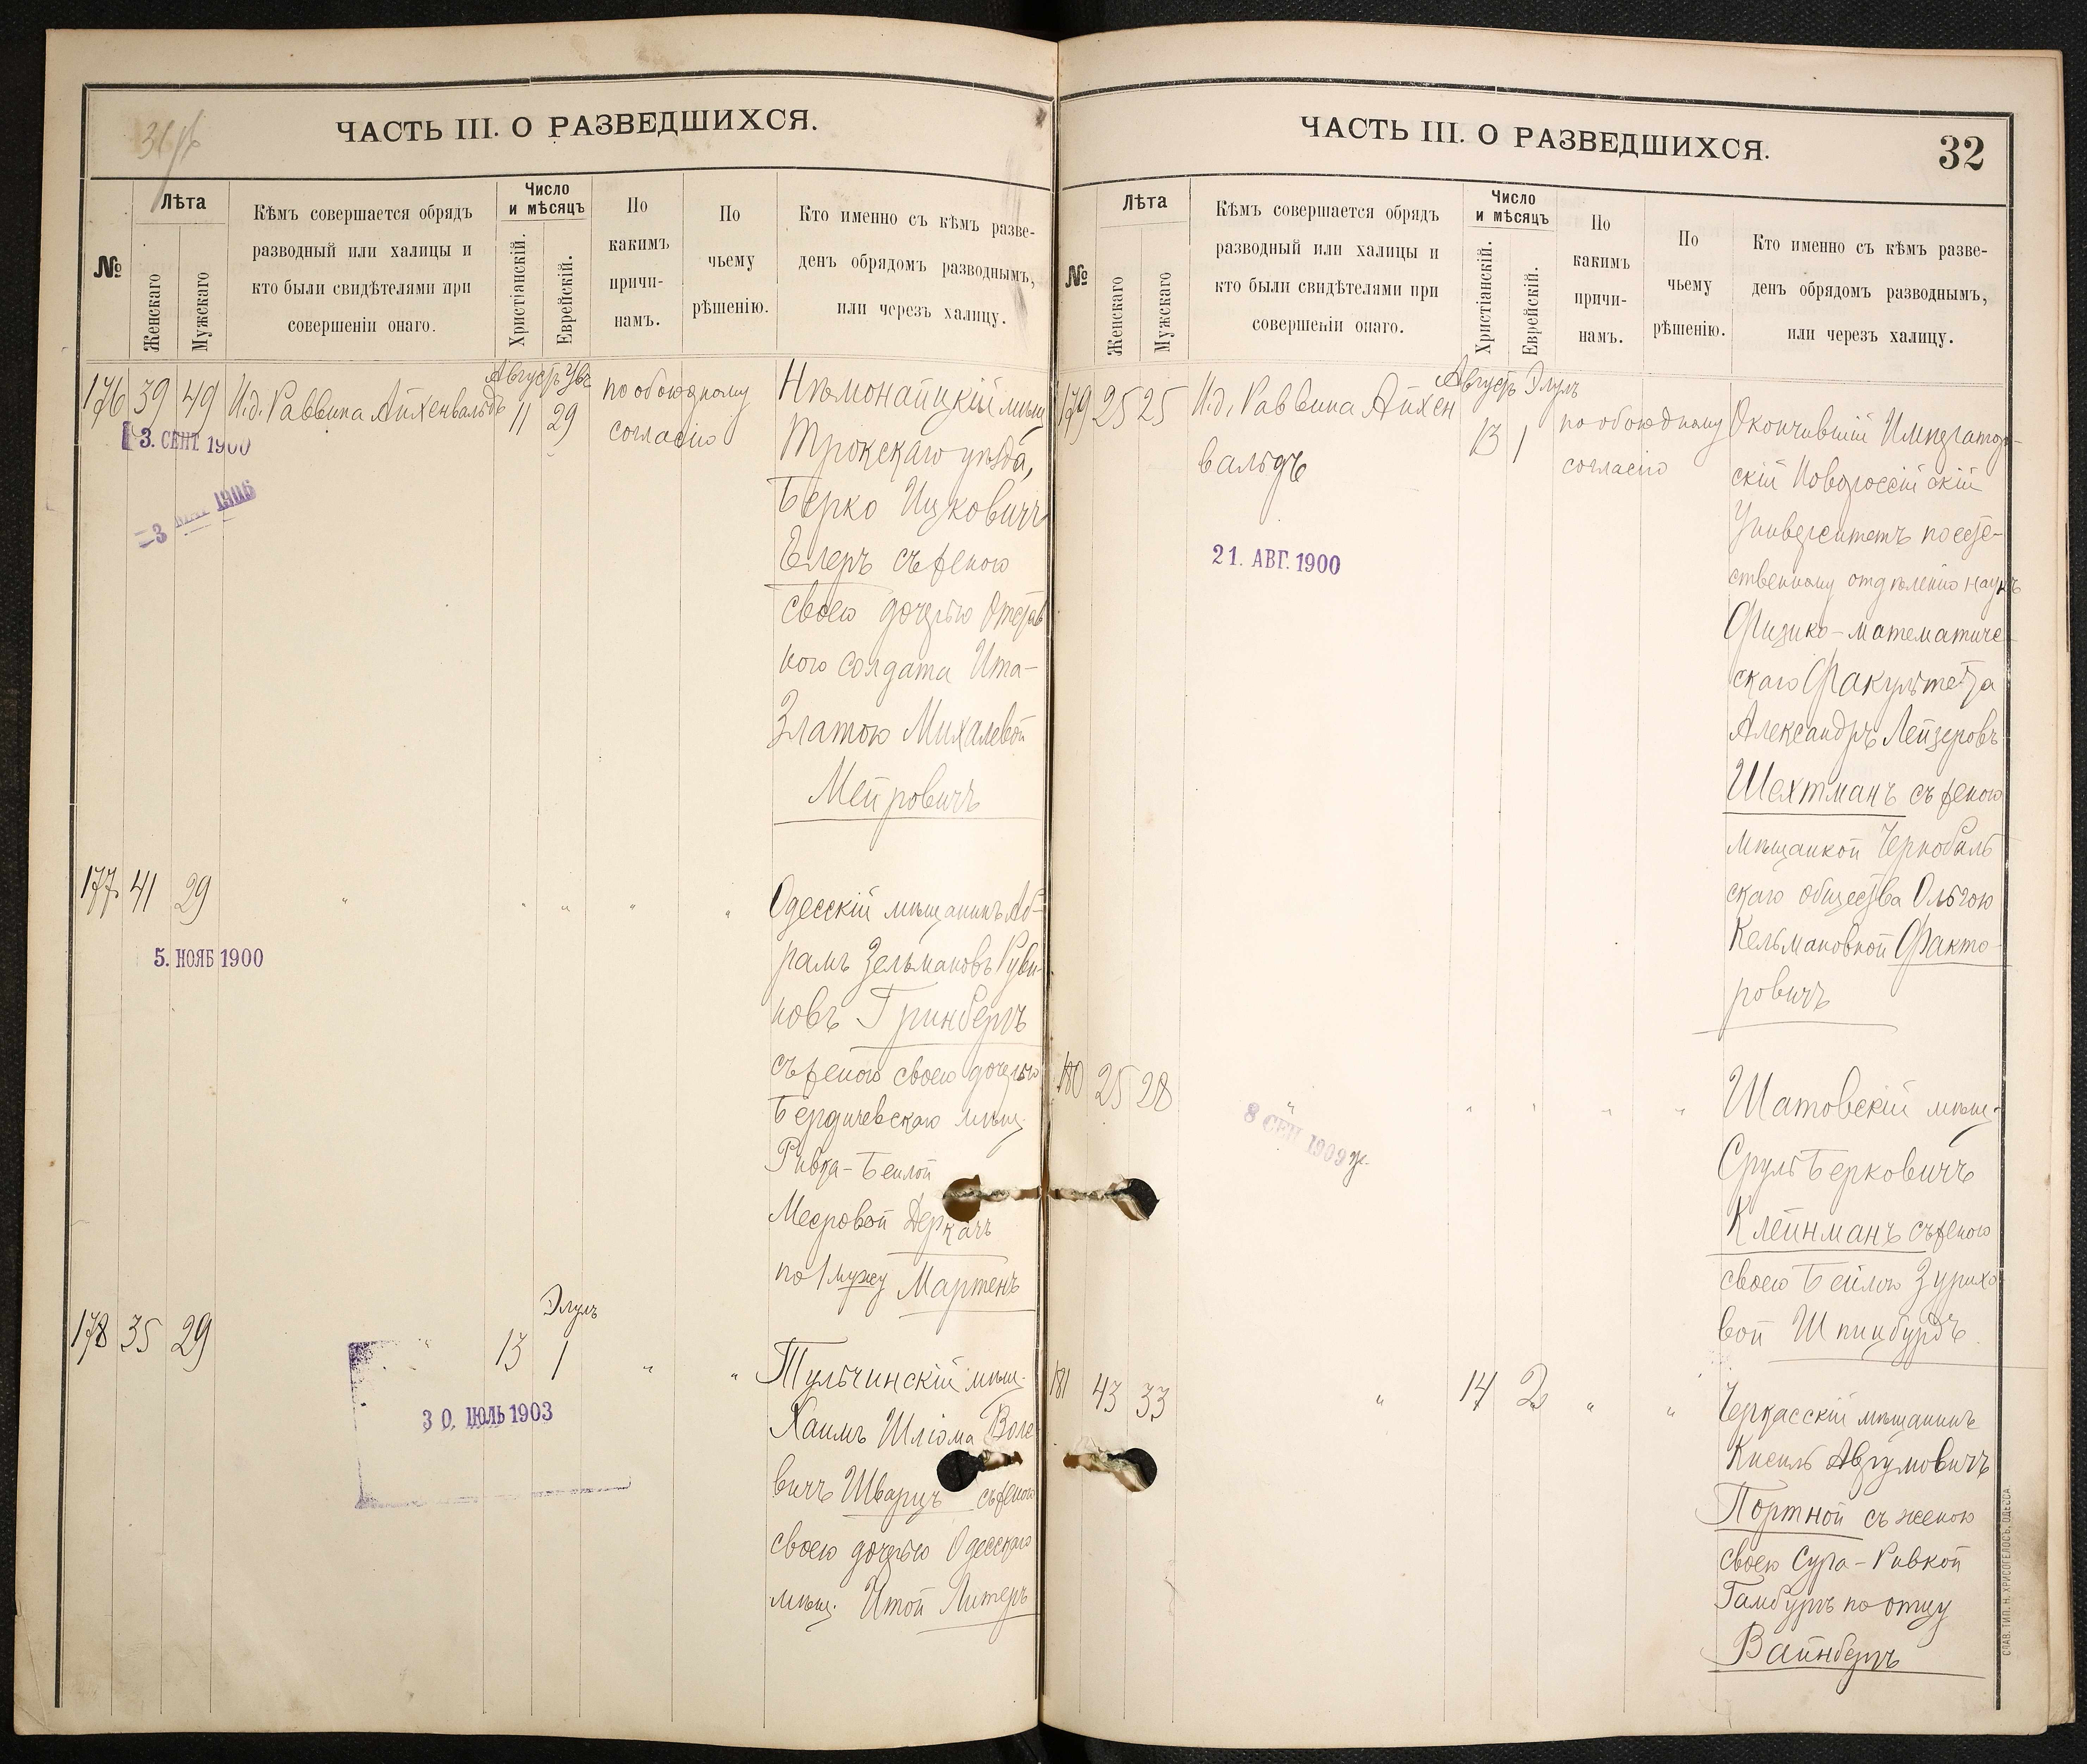 31 об
ЧАСТЬ III. О РАЗВЕДШИХСЯ.
№
Лѣта
Женскаго
Мужскаго
Кѣмъ совершается обрядъ
разводный или халицы и
кто были свидѣтелями при
совершеніи онаго.
Число
и мѣсяцъ
Христіанскій.
Еврейскій.
По
какимъ
причи-
намъ.
По
чьему
рѣшенію.
Кто именно съ кѣмъ разве-
денъ обрядомъ разводнымъ,
или черезъ халицу.
176 39 49 И.д. Раввина Айхенвальдъ
Августъ
11 29
по обоюдному
согласію
3. СЕНТ 1900
3 МАР 1906
Нѣмонайцкій мѣщ
Трокскаго уѣзда,
Берко Ицковичъ
Елеръ съ женою
своею дочерью Отстав
ного солдата Ита-
Златою Михалевой
Мейровичъ
177 41 29 " " " " "
5. НОЯБ 1900
Одесскій мѣщанинъ Аб-
рамъ Зельмановъ Руви-
новъ Гринбергъ
съ женою своею дочерью
Бердичевскаго мѣщ.
Ривка-Бейлой
Мееровой Деркачъ
по 1 мужу Мартенъ
Элулъ
178 35 29 " 13 1 " "
30. ІЮЛЬ 1903
Тульчинскій мѣщ.
Хаимъ Шліома Воле
вичъ Шварцъ съ женою
своею дочерью Одесскаго
мѣщ. Итой Литеръ
ЧАСТЬ III. О РАЗВЕДШИХСЯ.
32
№
Лѣта
Женскаго
Мужскаго
Кѣмъ совершается обрядъ
разводный или халицы и
кто были свидѣтелями при
совершеніи онаго.
Число
и мѣсяцъ
Христіанскій.
Еврейскій.
По
какимъ
причи-
намъ.
По
чьему
рѣшенію.
Кто именно съ кѣмъ разве-
денъ обрядомъ разводнымъ,
или черезъ халицу.
179 25 25 И.д. Раввина Айхен
вальдъ
Августъ Элулъ
13 1
по обоюдному
согласію
21. АВГ. 1900
Окончившій Император-
скій Новороссійскій
Университетъ по есте-
ственному отдѣленію наукъ
Физико-математиче-
скаго Факультета
Александръ Лейзеровъ
Шехтманъ съ женою
мѣщанкой Чернобыль
скаго общества Ольгою
Кельмановной Факто-
ровичъ
180 25 28 " " " " "
8 СЕН 1909
Шатовскій мѣщ.
Сруль Берковичъ
Клейнманъ съ женою
своею Бейлою Зурихо
вой Шпинбурдъ
181 43 33 " 14 2 " "
Черкасскій мѣщанинъ
Кисиль Аврумовичъ
Портной съ женою
своею Сура-Ривкой
Гамбургъ по отцу
Вайнбергъ
СЛАВ. ТИП. Н. ХРИСОГЕЛОСЪ. ОДЕССА.